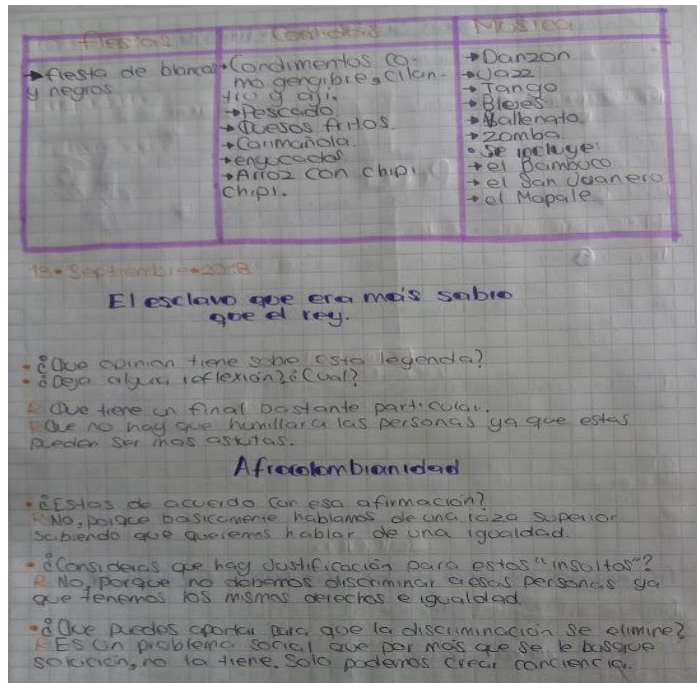 Fiestas
→ fiesta de blancos
y negros
Comidas
• Condimentos co-
mo gengibre, cilan-
tro y aji.
→ Pescado
→ Quesos fritos.
→ Carimañola.
→ enyucados
→ Arroz con chipi
chipi.
Musica
→ Danzon
→ Jazz
→ Tango
→ Blejes
→ Vallenato
→ Zomba.
• Se incluye:
→ el Bambuco
→ el San Juanero
→ el Mapale
18 • Septiembre • 2018
El esclavo que era mais sabio
que el rey.
• ¿Que opinion tiene sobre esta legenda?
• ¿Deja alguna reflexión? ¿Cual?
R Que tiene un final bastante particular.
R Que no hay que humillar a las personas ya que estas
pueden ser mas astutas.
Afrocolombianidad
• ¿Estas de acuerdo con esa afirmación?
R No, porque basicamente hablamos de una raza superior
sabiendo que queremos hablar de una igualdad.
• ¿Consideras que hay Justificación para estos "insultos"?
R No, porque no debemos discriminar a esas personas ya
que tenemos los mismos derechos e igualdad.
• ¿Que puedes aportar para que la discriminación se elimine?
R Es un problema social que por más que se le busque
solución, no la tiene. Solo podemos crear conciencia.